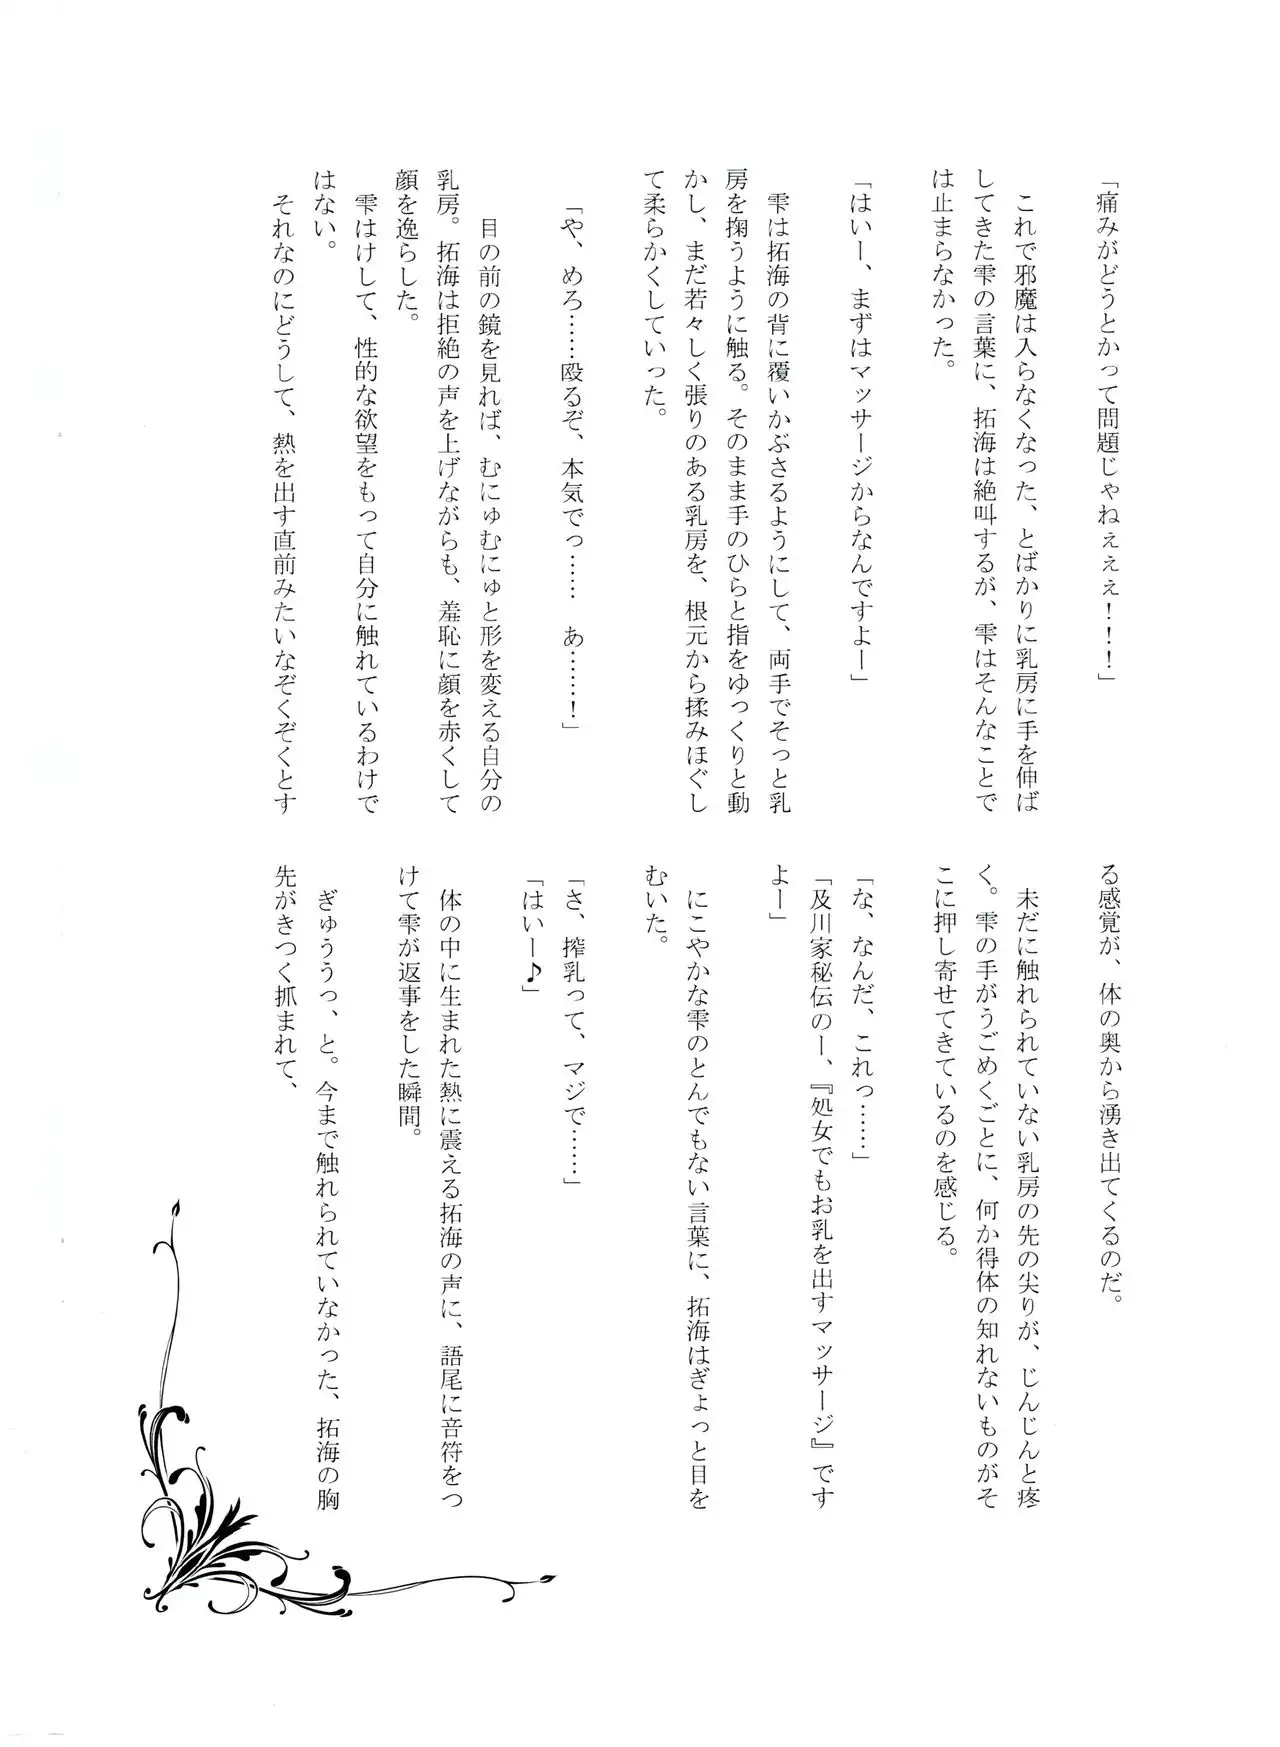 「痛みがどうとかって問題じゃねぇぇぇ！！！」
　これで邪魔は入らなくなった、とばかりに乳房に手を伸ば
してきた雫の言葉に、拓海は絶叫するが、雫はそんなことで
は止まらなかった。
「はいー、まずはマッサージからなんですよー」
　雫は拓海の背に覆いかぶさるようにして、両手でそっと乳
房を掬うように触る。そのまま手のひらと指をゆっくりと動
かし、まだ若々しく張りのある乳房を、根元から揉みほぐし
て柔らかくしていった。
「や、めろ……殴るぞ、本気でっ……　あ……！」
　目の前の鏡を見れば、むにゅむにゅと形を変える自分の
乳房。拓海は拒絶の声を上げながらも、羞恥に顔を赤くして
顔を逸らした。
　雫はけして、性的な欲望をもって自分に触れているわけで
はない。
　それなのにどうして、熱を出す直前みたいなぞくぞくとす
る感覚が、体の奥から湧き出てくるのだ。
　未だに触れられていない乳房の先の尖りが、じんじんと疼
く。雫の手がうごめくごとに、何か得体の知れないものがそ
こに押し寄せてきているのを感じる。
「な、なんだ、これっ……」
「及川家秘伝のー、『処女でもお乳を出すマッサージ』です
よー」
　にこやかな雫のとんでもない言葉に、拓海はぎょっと目を
むいた。
「さ、搾乳って、マジで……」
「はいー♪」
　体の中に生まれた熱に震える拓海の声に、語尾に音符をつ
けて雫が返事をした瞬間。
　ぎゅううっ、と。今まで触れられていなかった、拓海の胸
先がきつく抓まれて、